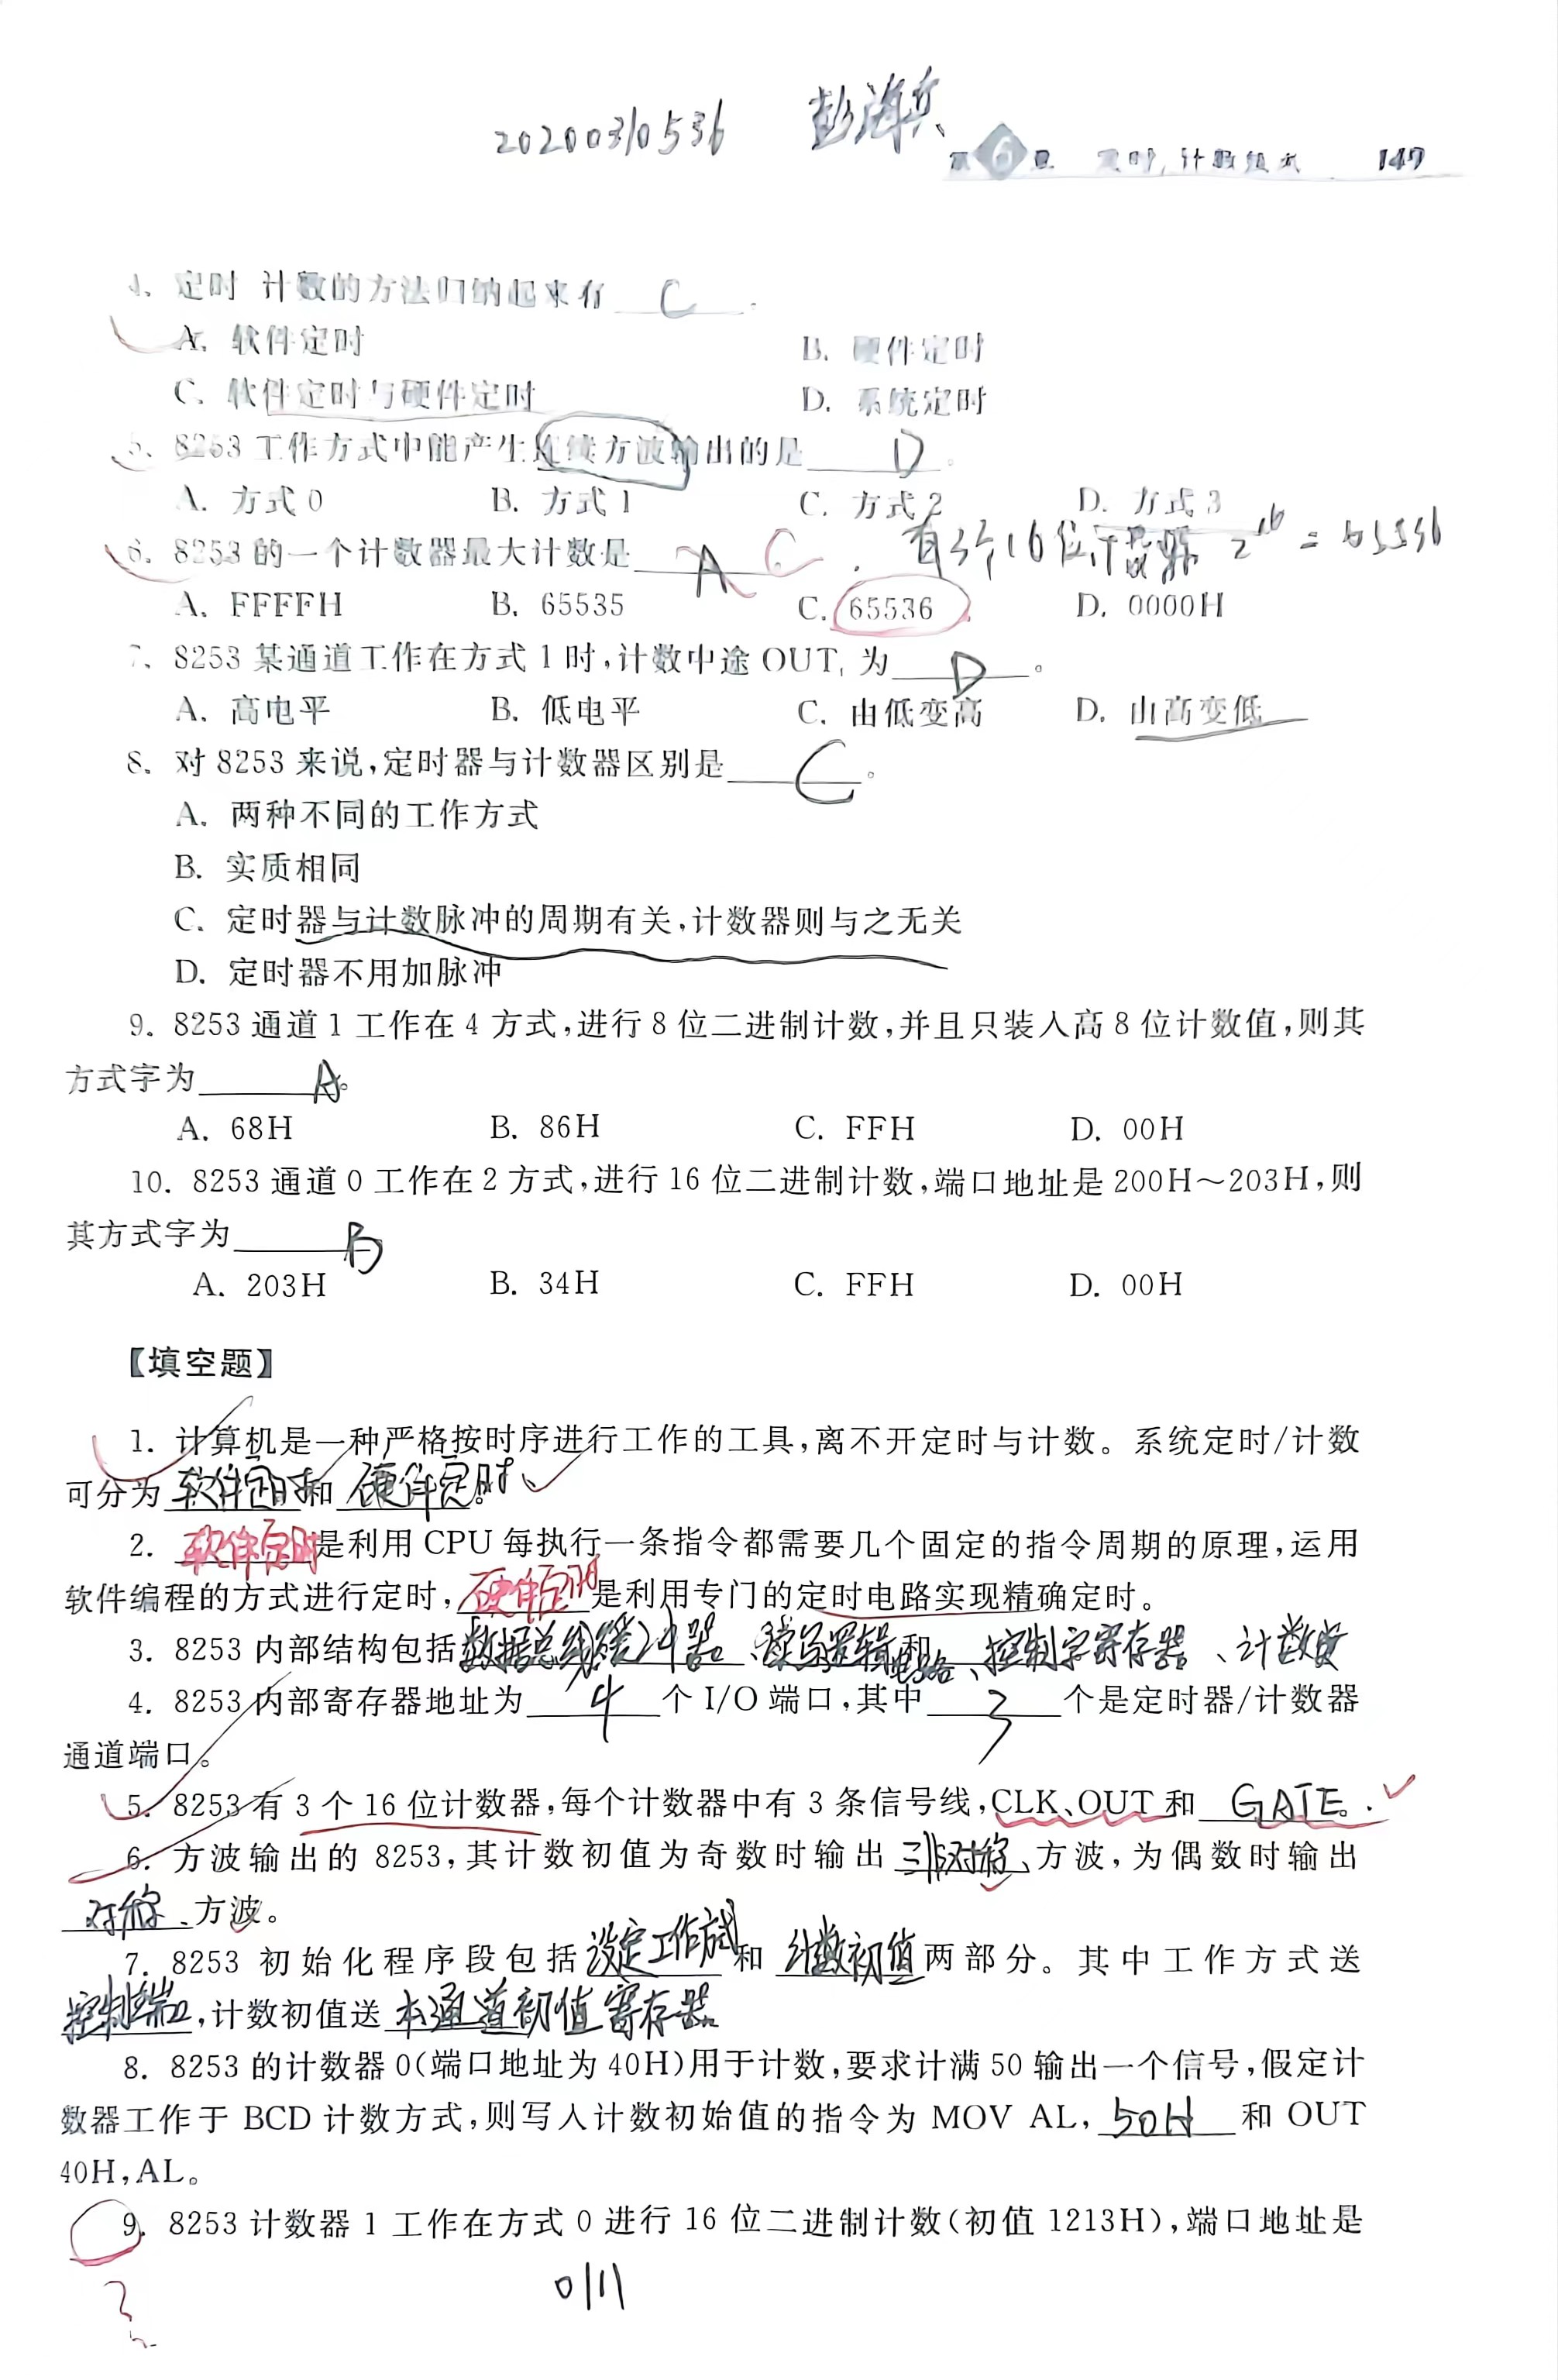 20200310536 彭海兵
第6章 定时/计数技术 147
4. 定时 计数的方法归纳起来有 C 。
A. 软件定时 B. 硬件定时
C. 软件定时与硬件定时 D. 系统定时
5. 8253 工作方式中能产生连续方波输出的是 D 。
A. 方式 0 B. 方式 1 C. 方式 2 D. 方式 3
有3个16位计数器 2^16 = 65536
6. 8253 的一个计数器最大计数是 A C 。
A. FFFFH B. 65535 C. 65536 D. 0000H
7. 8253 某通道工作在方式 1 时,计数中途 OUT, 为 D 。
A. 高电平 B. 低电平 C. 由低变高 D. 由高变低
8. 对 8253 来说,定时器与计数器区别是 C 。
A. 两种不同的工作方式
B. 实质相同
C. 定时器与计数脉冲的周期有关,计数器则与之无关
D. 定时器不用加脉冲
9. 8253 通道 1 工作在 4 方式,进行 8 位二进制计数,并且只装入高 8 位计数值,则其
方式字为 A 。
A. 68H B. 86H C. FFH D. 00H
10. 8253 通道 0 工作在 2 方式,进行 16 位二进制计数,端口地址是 200H~203H,则
其方式字为 B
A. 203H B. 34H C. FFH D. 00H
【填空题】
1. 计算机是一种严格按时序进行工作的工具,离不开定时与计数。系统定时/计数
可分为 软件定时 和 硬件定时 。
2. 软件定时 是利用 CPU 每执行一条指令都需要几个固定的指令周期的原理,运用
软件编程的方式进行定时, 硬件定时 是利用专门的定时电路实现精确定时。
3. 8253 内部结构包括 数据总线缓冲器 、 读写逻辑电路 和 、控制字寄存器、计数
4. 8253 内部寄存器地址为 4 个 I/O 端口,其中 3 个是定时器/计数器
通道端口。
5. 8253 有 3 个 16 位计数器,每个计数器中有 3 条信号线,CLK、OUT 和 GATE 。
6. 方波输出的 8253,其计数初值为奇数时输出 非对称 方波,为偶数时输出
对称 方波。
7. 8253 初始化程序段包括 设定工作方式 和 计数初值 两部分。其中工作方式送
控制端口 ,计数初值送 本通道初值寄存器
8. 8253 的计数器 0(端口地址为 40H)用于计数,要求计满 50 输出一个信号,假定计
数器工作于 BCD 计数方式,则写入计数初始值的指令为 MOV AL, 50H 和 OUT
40H,AL。
9. 8253 计数器 1 工作在方式 0 进行 16 位二进制计数(初值 1213H),端口地址是
0111